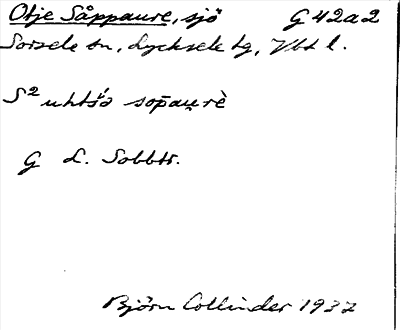 Otje Såppaure, sjö G 42a2
Sorsele sn, Lycksele tg, Vbtn l.
S² uhtśə sopau̯rè
G L. Sobbtr.
Björn Collinder 1937